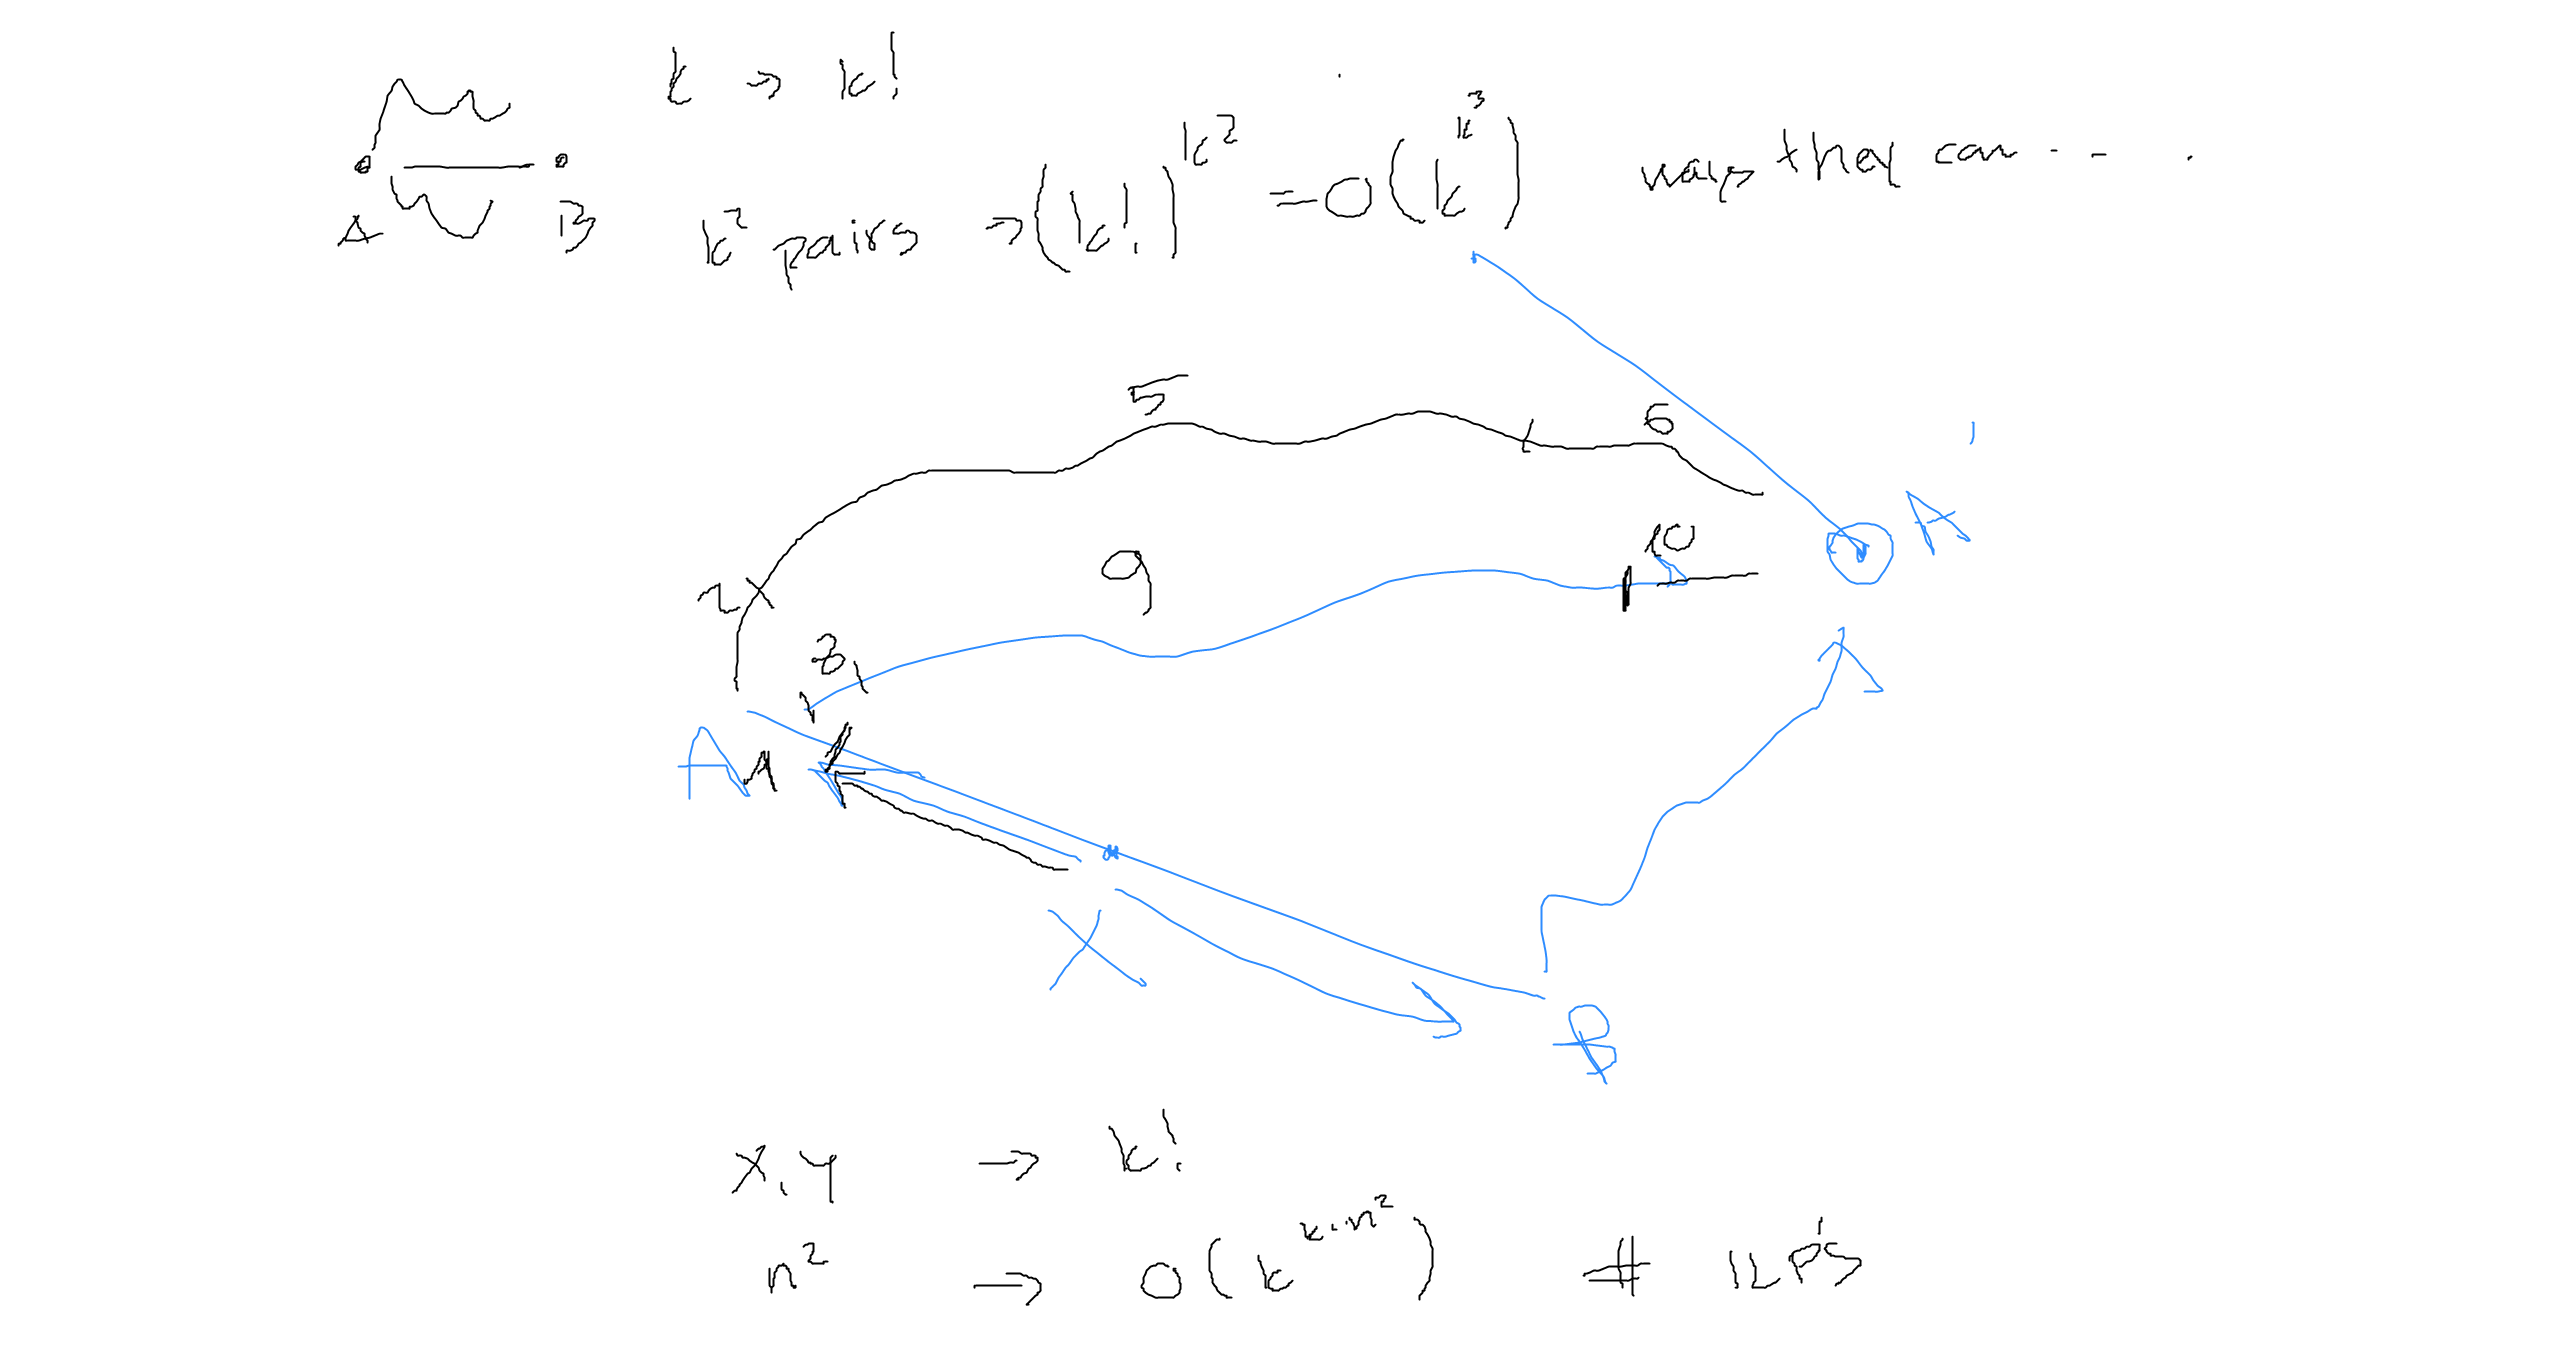 k → k!
A B k² pairs → (k!)^k² = O(k^k³) ways they can - - .
5 6
A'
10
9
2
8
A 1
X
B
X, Y → k!
n² → O(k^k·n²) # ILP's